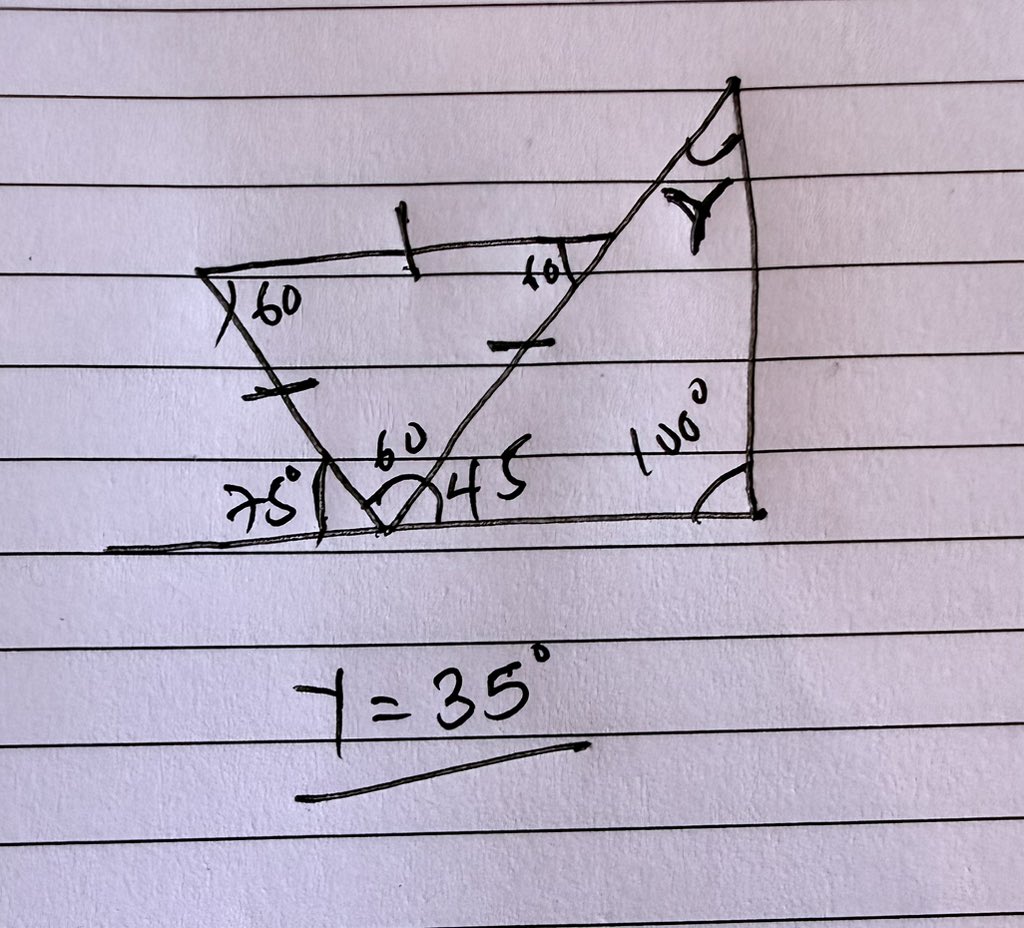 Y
60
60
60
75°
45
100°
Y = 35°